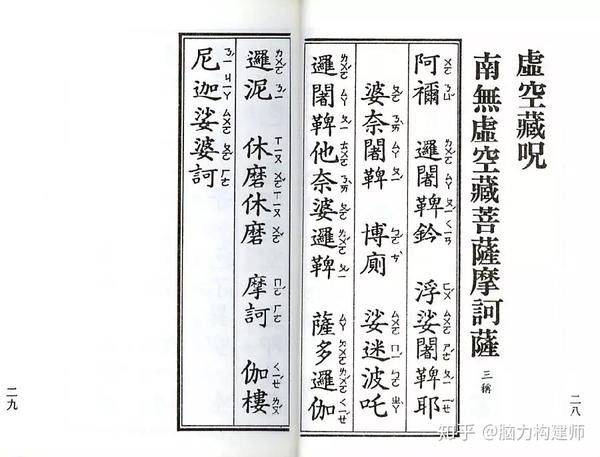 虛空藏呪
南無虛空藏菩薩摩訶薩 三稱
阿禰 邏闍鞞鈐 浮娑闍鞞耶
婆奈闍鞞 博廁 娑迷波吒
二八
邏闍鞞他奈婆邏鞞 薩多邏伽
邏泥 休磨休磨 摩訶 伽樓
尼迦娑婆訶
二九
知乎 @脑力构建师